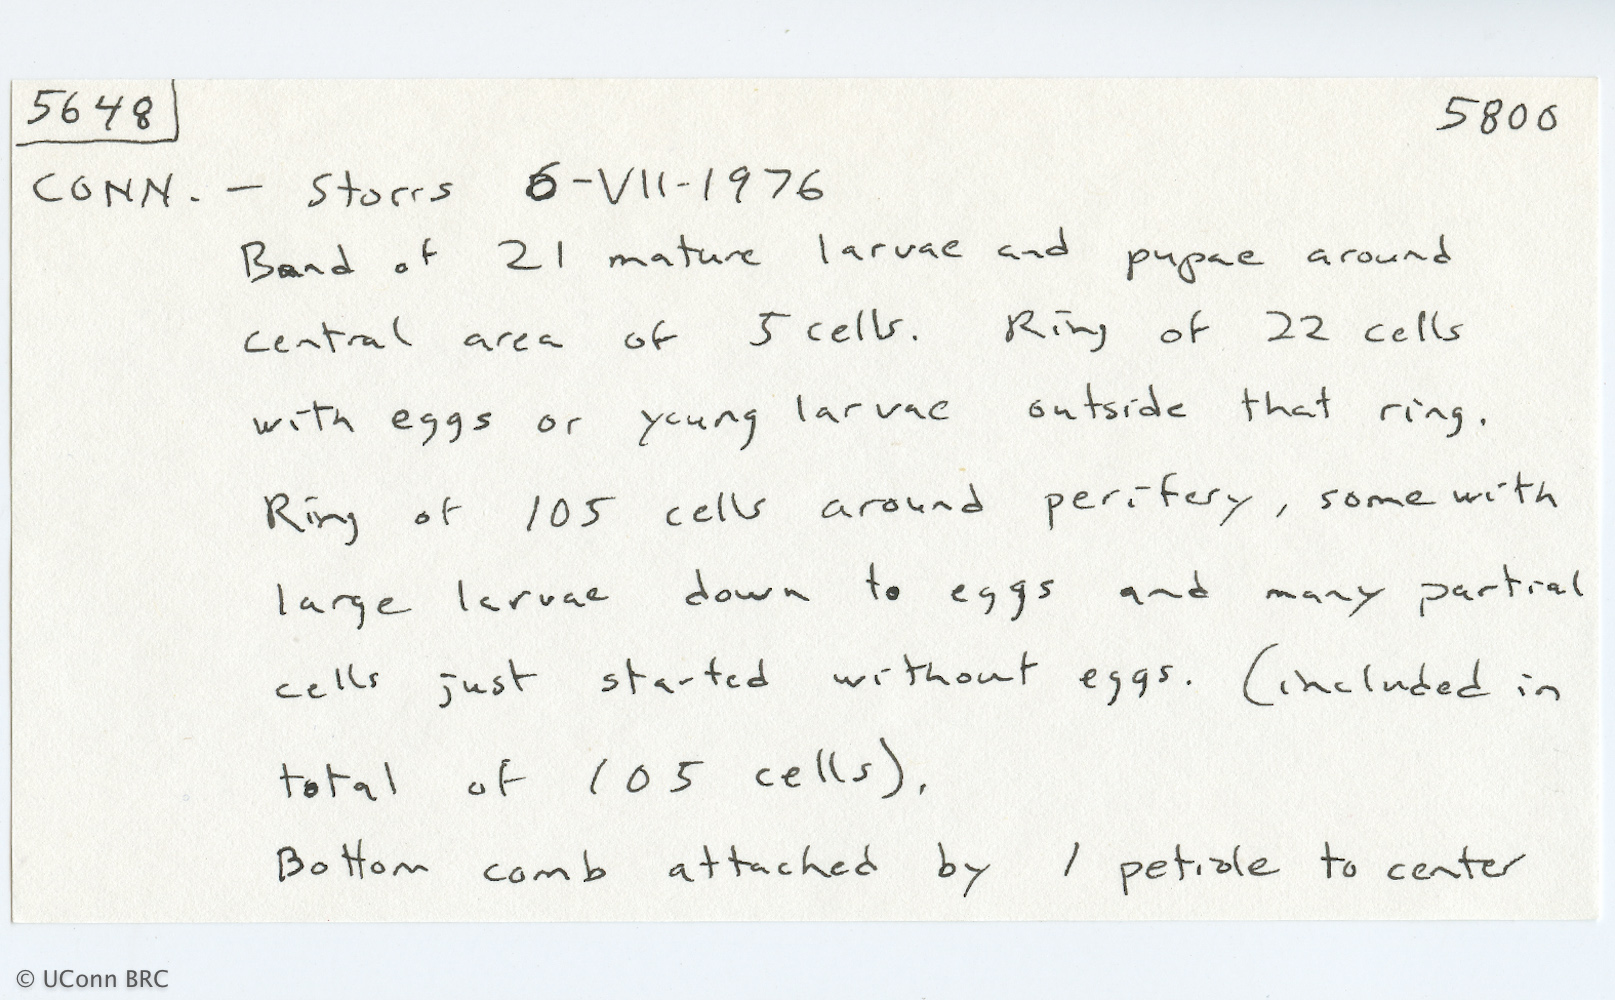 5648 5800
CONN. - Storrs 6-VII-1976
Band of 21 mature larvae and pupae around
central area of 5 cells. Ring of 22 cells
with eggs or young larvae outside that ring.
Ring of 105 cells around perifery, some with
large larvae down to eggs and many partial
cells just started without eggs. (included in
total of 105 cells).
Bottom comb attached by 1 petiole to center
© UConn BRC